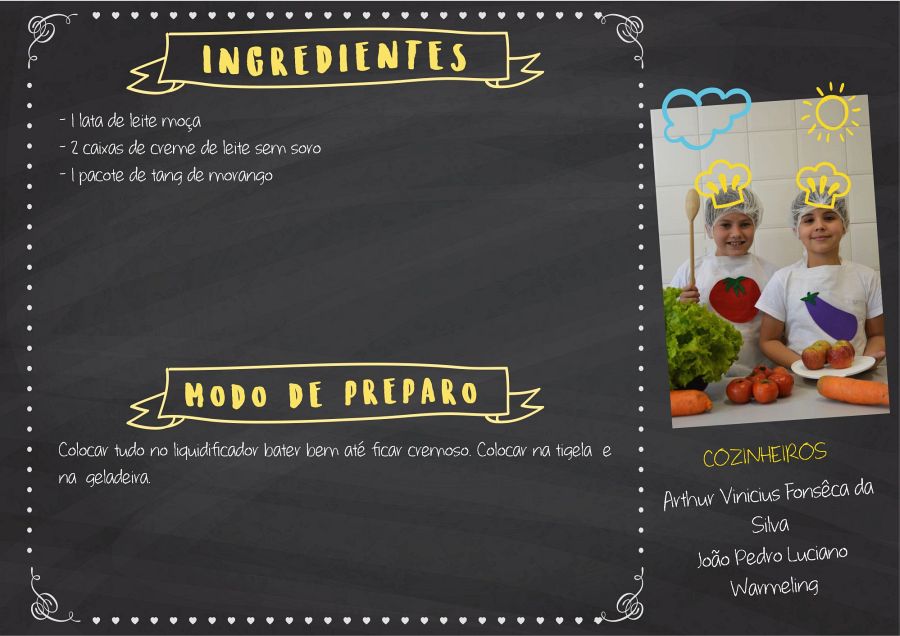 INGREDIENTES
- 1 lata de leite moça
- 2 caixas de creme de leite sem soro
- 1 pacote de tang de morango
MODO DE PREPARO
Colocar tudo no liquidificador bater bem até ficar cremoso. Colocar na tigela e
na geladeira.
COZINHEIROS
Arthur Vinicius Fonsêca da
Silva
João Pedro Luciano
Warmeling